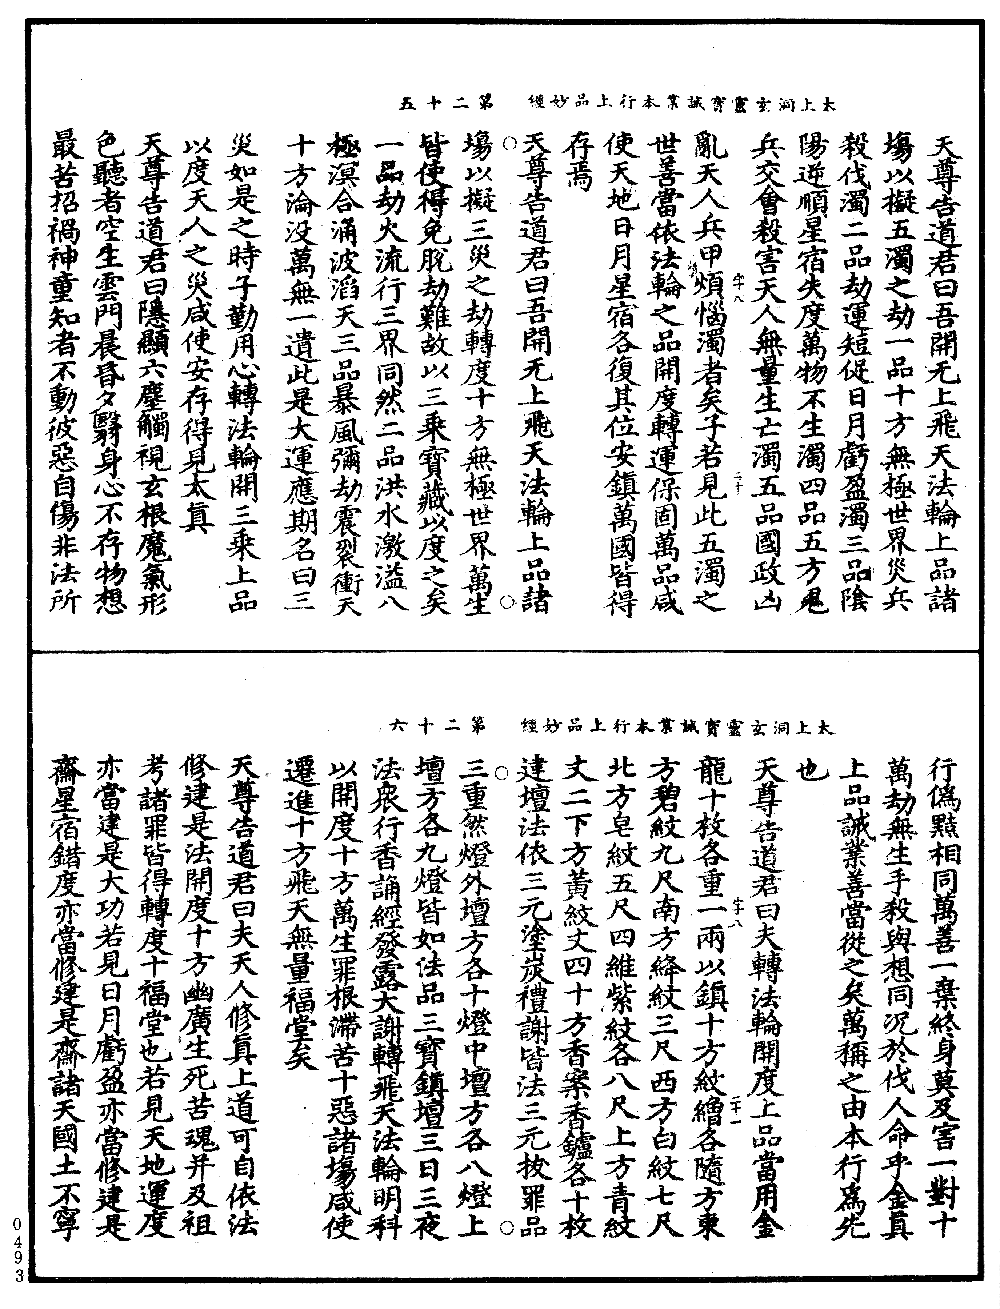 太上洞玄靈寳誡業本行上品妙經　第二十五
天尊告道君曰吾開无上飛天法輪上品諸
塲以擬五濁之劫一品十方無極世界災兵
殺伐濁二品劫運短促日月虧盈濁三品陰
陽逆順星宿失度萬物不生濁四品五方鬼
兵交會殺害天人無量生亡濁五品國政凶
亂天人兵甲煩惱濁者矣子若見此五濁之
世善當依法輪之品開度轉運保固萬品咸
使天地日月星宿各復其位安鎮萬國皆得
存焉
天尊告道君曰吾開无上飛天法輪上品諸
塲以擬三災之劫轉度十方無極世界萬生
皆使得免脫劫難故以三乘寶藏以度之矣
一品劫火流行三界同然二品洪水激溢八
極溟合涌波滔天三品暴風彌劫震裂衝天
十方淪没萬無一遺此是大運應期名曰三
災如是之時子勤用心轉法輪開三乘上品
以度天人之災咸使安存得見太真
天尊告道君曰隱顯六塵觸視玄根魔氣形
色聽者空生雲門晨昏夕翳身心不存物想
最苦招禍神童知者不動彼惡自傷非法所
太上洞玄靈寳誡業本行上品妙經　第二十六
行僞㸃相同萬善一棄終身莫及害一對十
萬劫無生手殺與想同况於伐人命乎金真
上品誡業善當從之矣萬稱之由本行爲先
也
天尊告道君曰夫轉法輪開度上品當用金
龍十枚各重一兩以鎮十方紋繒各隨方東
方碧紋九尺南方絳紋三尺西方白紋七尺
北方皂紋五尺四維紫紋各八尺上方青紋
丈二下方黃紋丈四十方香案香鑪各十枚
建壇法依三元塗炭禮謝皆法三元拔罪品
三重然燈外壇方各十燈中壇方各八燈上
壇方各九燈皆如法品三寶鎮壇三日三夜
法衆行香誦經發露大謝轉飛天法輪明科
以開度十方萬生罪根滯苦十惡諸塲咸使
遷進十方飛天無量福堂矣
天尊告道君曰夫天人修真上道可自依法
修建是法開度十方幽廣生死苦魂并及祖
考諸罪皆得轉度十福堂也若見天地運度
亦當建是大功若見日月虧盈亦當修建是
齋星宿錯度亦當修建是齋諸天國土不寧
0493